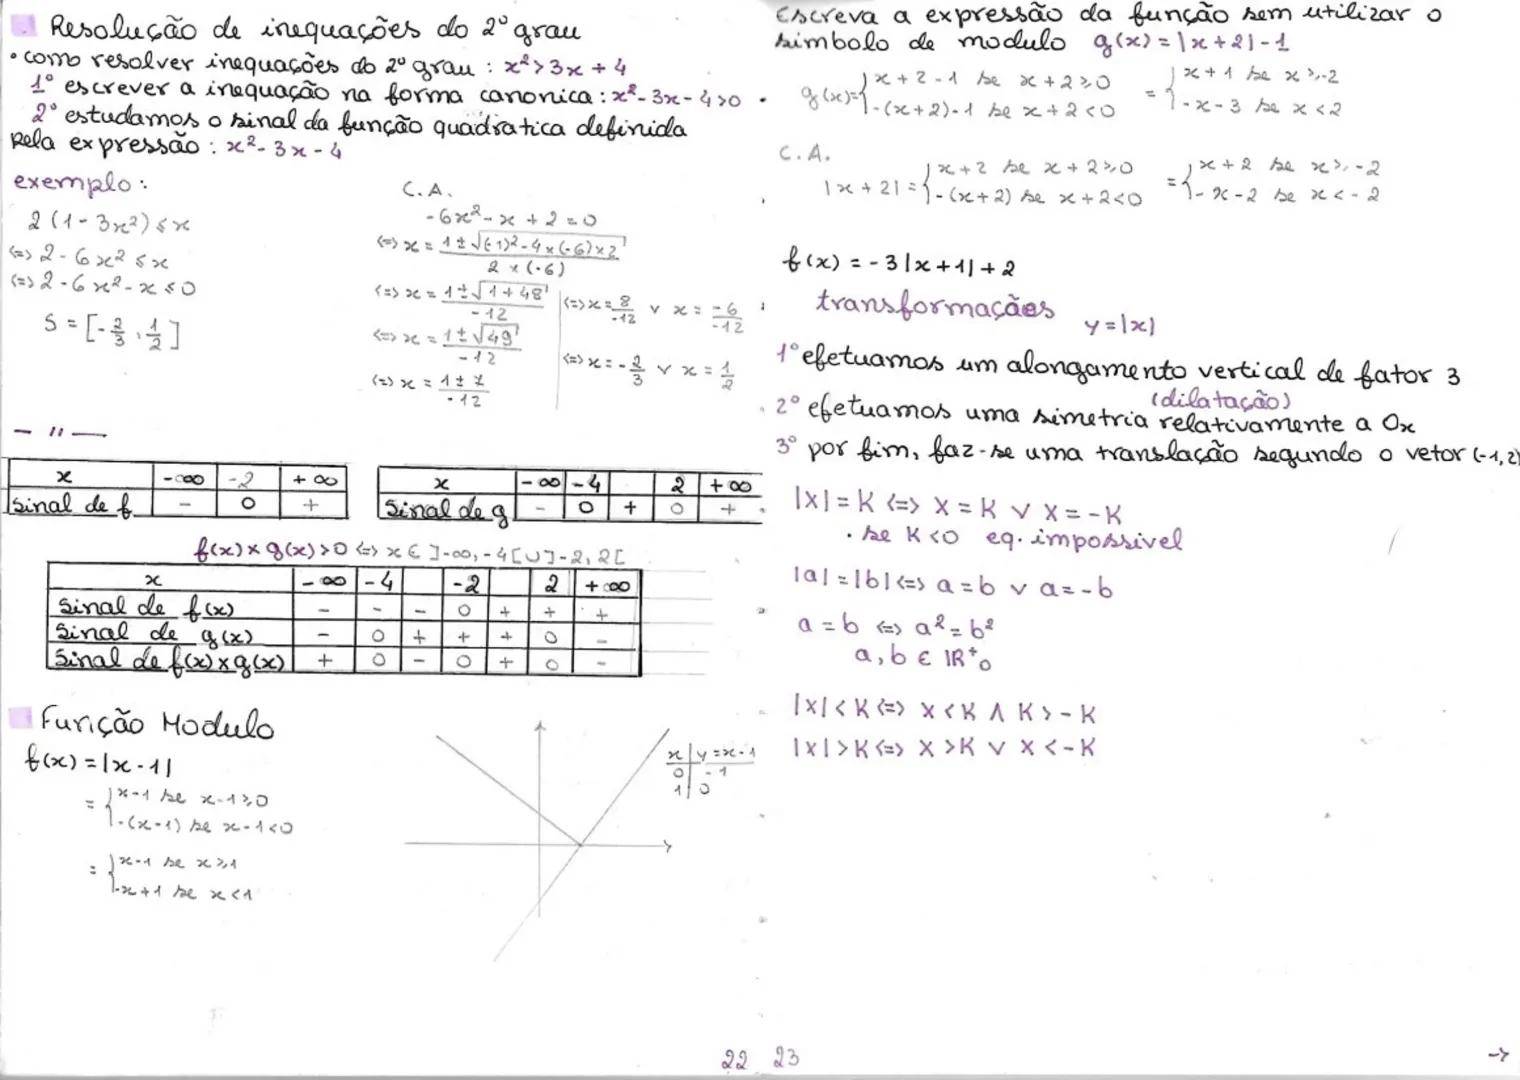 Resolução de inequações do 2º grau
• como resolver inequações do 2º grau : x²>3x+4
1º escrever a inequação na forma canonica : x²-3x-4>0
2º estudamos o sinal da função quadratica definida
pela expressão : x²-3x-4
exemplo:
2(1-3x²)≤x
(=) 2-6x²≤x
(=) 2-6x²-x≤0
S = [-2/3, 1/2]
C.A.
-6x²-x+2=0
(=) x = 1±√((-1)²-4x(-6)x2) / 2x(-6)
(=) x = 1±√(1+48) / -12
(=) x = 1±√49 / -12
(=) x = 1±7 / -12
(=) x = 8/-12 ∨ x = -6/-12
(=) x = -2/3 ∨ x = 1/2
— 11 —
x | -∞ | -2 | +∞
Sinal de f | - | 0 | +
x | -∞ | -4 | | 2 | +∞
Sinal de g | - | 0 | + | 0 | +
f(x)×g(x)>0 (=) x ∈ ]-∞,-4[∪]-2,2[
x | -∞ | -4 | | -2 | | 2 | +∞
Sinal de f(x) | - | - | - | 0 | + | + | +
Sinal de g(x) | - | 0 | + | + | + | 0 | -
Sinal de f(x)×g(x) | + | 0 | - | 0 | + | 0 | -
Função Modulo
f(x) = |x-1|
= { x-1 se x-1≥0
-(x-1) se x-1<0
= { x-1 se x≥1
-x+1 se x<1
x | y=x-1
0 | -1
1 | 0
22
Escreva a expressão da função sem utilizar o
simbolo de modulo g(x)=|x+2|-1
g(x)={ x+2-1 se x+2≥0 = { x+1 se x≥-2
-(x+2)-1 se x+2<0 -x-3 se x<2
C.A.
|x+2|={ x+2 se x+2≥0 = { x+2 se x≥-2
-(x+2) se x+2<0 -x-2 se x<-2
f(x) = -3|x+1|+2
transformações y=|x|
1º efetuamos um alongamento vertical de fator 3
(dilatação)
2º efetuamos uma simetria relativamente a Ox
3º por fim, faz-se uma translação segundo o vetor (-1,2)
|x|=K (=) x=K ∨ x=-K
• se K<0 eq. impossivel
|a|=|b| (=) a=b ∨ a=-b
a=b (=) a²=b²
a,b ∈ IR⁺₀
|x|<K (=) x<K ∧ K>-K
|x|>K (=) x>K ∨ x<-K
23
→